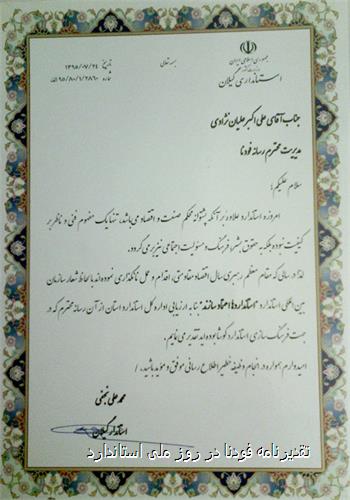 بسمه تعالی
جمهوری اسلامی ایران
استانداری گیلان
تاریخ ۱۳۹۵/۰۷/۲۴
شماره
جناب آقای علی اکبر علیان نژادی
مدیریت محترم رسانه فودنا
سلام علیکم؛
امروزه استاندارد علاوه بر آنکه پشتوانه محکم صنعت و اقتصاد می باشد، تنها یک مفهوم فنی و ناظر بر
کیفیت نبوده بلکه به حقوق بشر، فرهنگ و مسئولیت اجتماعی نیز بر می گردد.
لذا در سالی که مقام معظم رهبری سال اقتصاد مقاومتی، اقدام و عمل نامگذاری نموده اند با لحاظ شعار سازمان
بین المللی استاندارد "استانداردها اعتماد سازند" بنا به ارزیابی اداره کل استاندارد استان از آن رسانه محترم که در
جهت فرهنگ سازی استاندارد کوشا بوده اید تقدیر می نمایم.
امیدوارم همواره در انجام وظیفه خطیر اطلاع رسانی موفق و مؤید باشید./
محمد علی نجفی
استاندار گیلان
تقدیرنامه فودنا در روز ملی استاندارد